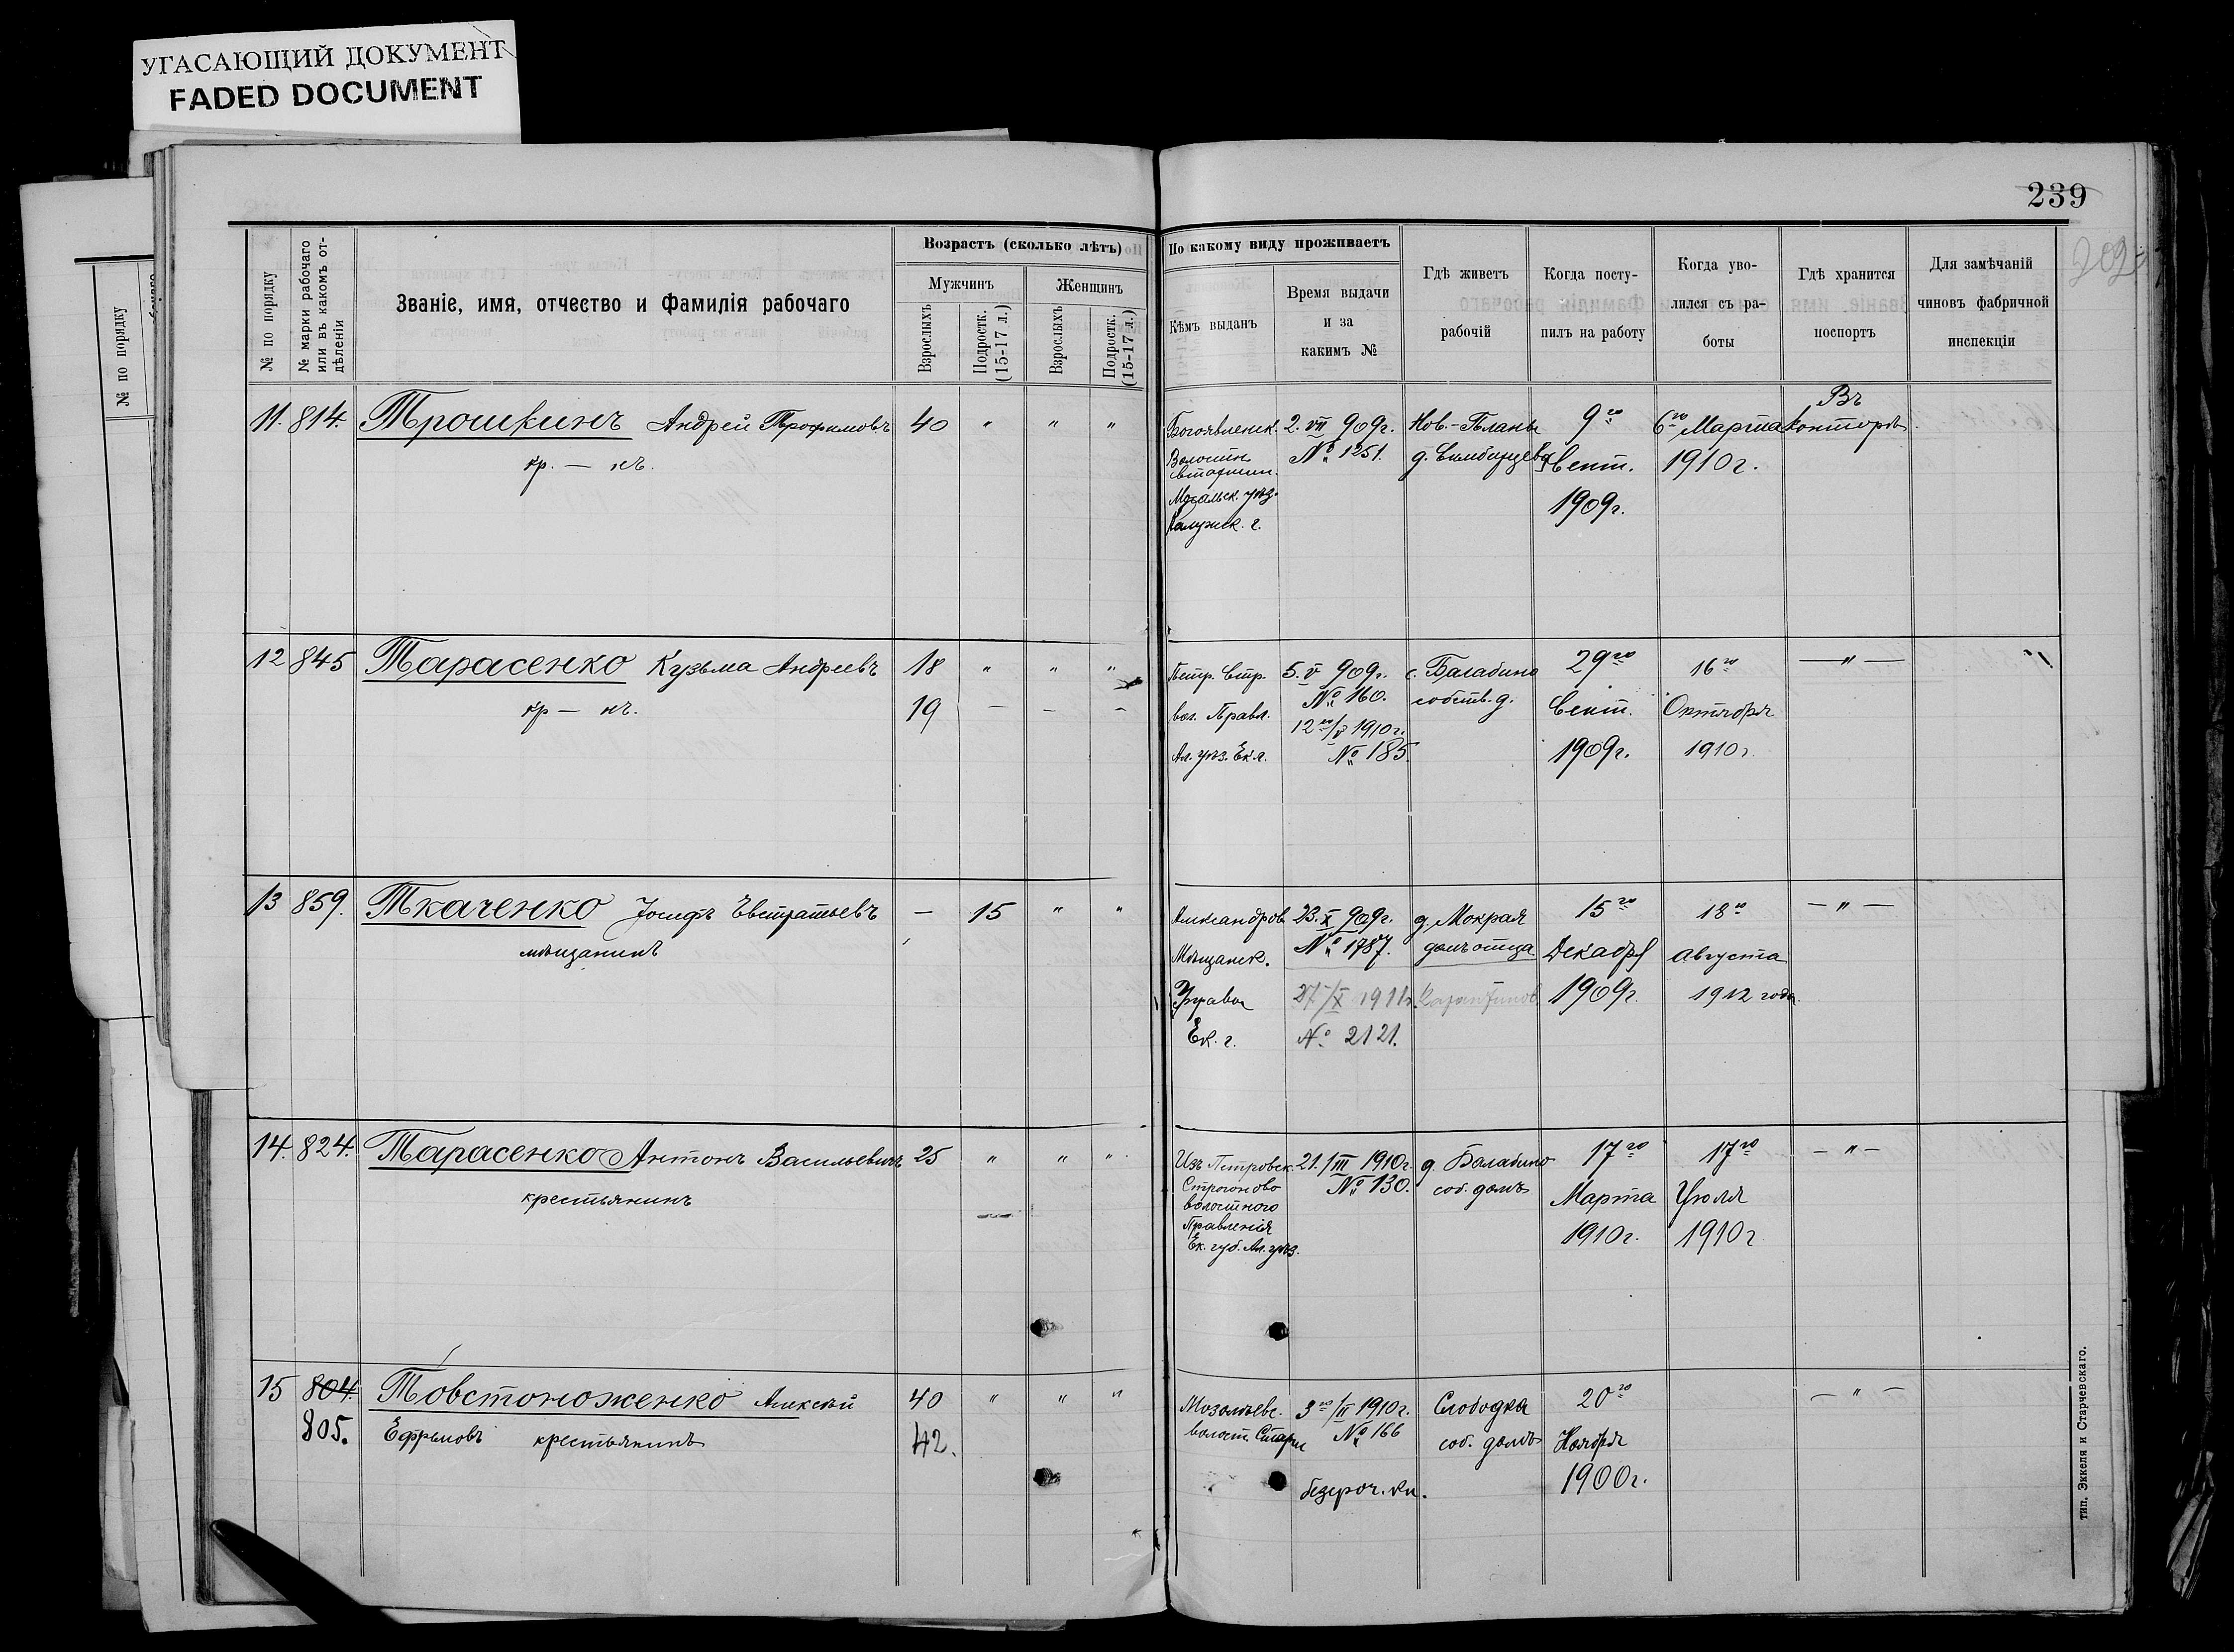 УГАСАЮЩИЙ ДОКУМЕНТ
FADED DOCUMENT
239
№ по порядку
№ по порядку
№ марки рабочаго или въ какомъ отдѣленіи
Званіе, имя, отчество и фамилія рабочаго
Возрастъ (сколько лѣтъ)
Мужчинъ
Женщинъ
Взрослыхъ
Подростк. (15-17 л.)
Взрослыхъ
Подростк. (15-17 л.)
По какому виду проживаетъ
Кѣмъ выданъ
Время выдачи
и за
какимъ №
Гдѣ живетъ
рабочій
Когда посту-
пилъ на работу
Когда уво-
лился съ ра-
боты
Гдѣ хранится
поспортъ
Для замѣчаній
чиновъ фабричной
инспекціи
11. 814. Трошкинъ Андрей Трофимовъ 40 " " "
кр. — нъ.
Богоявленск.
Волостн.
старшин.
Мосальск. уѣз.
Калужск. г.
2. VII 909г.
№ 1251.
Нов.-Планы
д. Симбирцева
9го
Сент.
1909г.
6го Марта
1910г.
Въ
Конторѣ
12 845 Тарасенко Кузьма Андреевъ 18 " " "
кр — нъ. 19 — — —
Петр. Стр.
вол. Правл.
Ал. уѣз. Ек. г.
5. V 909г.
№ 160.
12го/V 1910г.
№ 185.
с. Балабино
собств. д.
29го
Сент.
1909г.
16го
Октября
1910г.
— " —
13 859. Ткаченко Іосифъ Евстратьевъ — 15 " "
мѣщанинъ
Александров
Мѣщанск.
Управа
Ек. г.
23. X 909г.
№ 1787.
27/X 1911г.
№ 2121.
д. Мокрая
домъ отца
15го
Декабр
1909г.
18го
Августа
1912 года.
— " —
14. 824. Тарасенко Антонъ Васильевичъ 25 " " "
крестьянинъ
Изъ Петровск.
Строгоново
волостного
Правленія
Ек. губ. Ал. уѣз.
21./III 1910г.
№ 130.
д. Балабино
соб. домъ
17го
Марта
1910г.
17го
Іюля
1910г
— " —
15 804. Товстоноженко Алексѣй 40 " " "
805. Ефремовъ крестьянинъ 42.
волост. Старш
3го/II 1910г.
№ 166
безсроч. кн.
Слободка
соб. домъ
20го
Ноября
1900г.
— " —
тип. Эккеля и Старчевскаго.